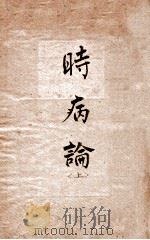 時病論
上